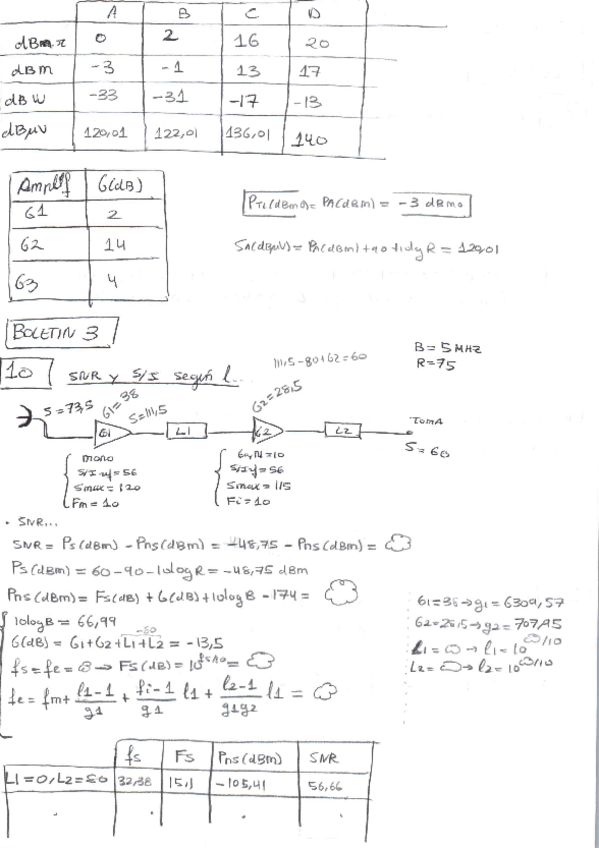 A B C D
dBm r 0 2 16 20
dBm -3 -1 13 17
dBW -33 -31 -17 -13
dBμV 120,01 122,01 136,01 140
Amplif G(dB)
G1 2
G2 14
G3 4
PTL(dBm0)= PA(dBm) = -3 dBm0
SA(dBμV)= PA(dBm)+90+10lgR = 120,01
BOLETIN 3
10 SNR y S/I según l...
111,5-80+G2=60
B = 5 MHz
R = 75
S = 73,5 G1=38 S=111,5 G2=28,5
G1 L1 G2 L2 TOMA
S = 60
mono
S/I =56
Smax = 120
Fm = 10
=10
S/I =56
Smax = 115
Fi = 10
• SNR...
SNR = Ps(dBm) - Pns(dBm) = -48,75 - Pns(dBm) =
Ps(dBm) = 60-90-10logR = -48,75 dBm
Pns(dBm) = Fs(dB) + G(dB)+10logB -174 =
10logB = 66,99
-80
G(dB) = G1+G2+L1+L2 = -13,5
fs = fe = → Fs(dB) = 10^fs/10 =
fe = fm + l1-1/g1 + fi-1/g1 l1 + l2-1/g1g2 l1 =
G1=38 → g1 = 6309,57
G2=28,5 → g2 = 707,95
L1 = → l1 = 10^ /10
L2 = → l2 = 10^ /10
fs Fs Pns(dBm) SNR
L1=0, L2=80 32,38 15,1 -105,41 56,66